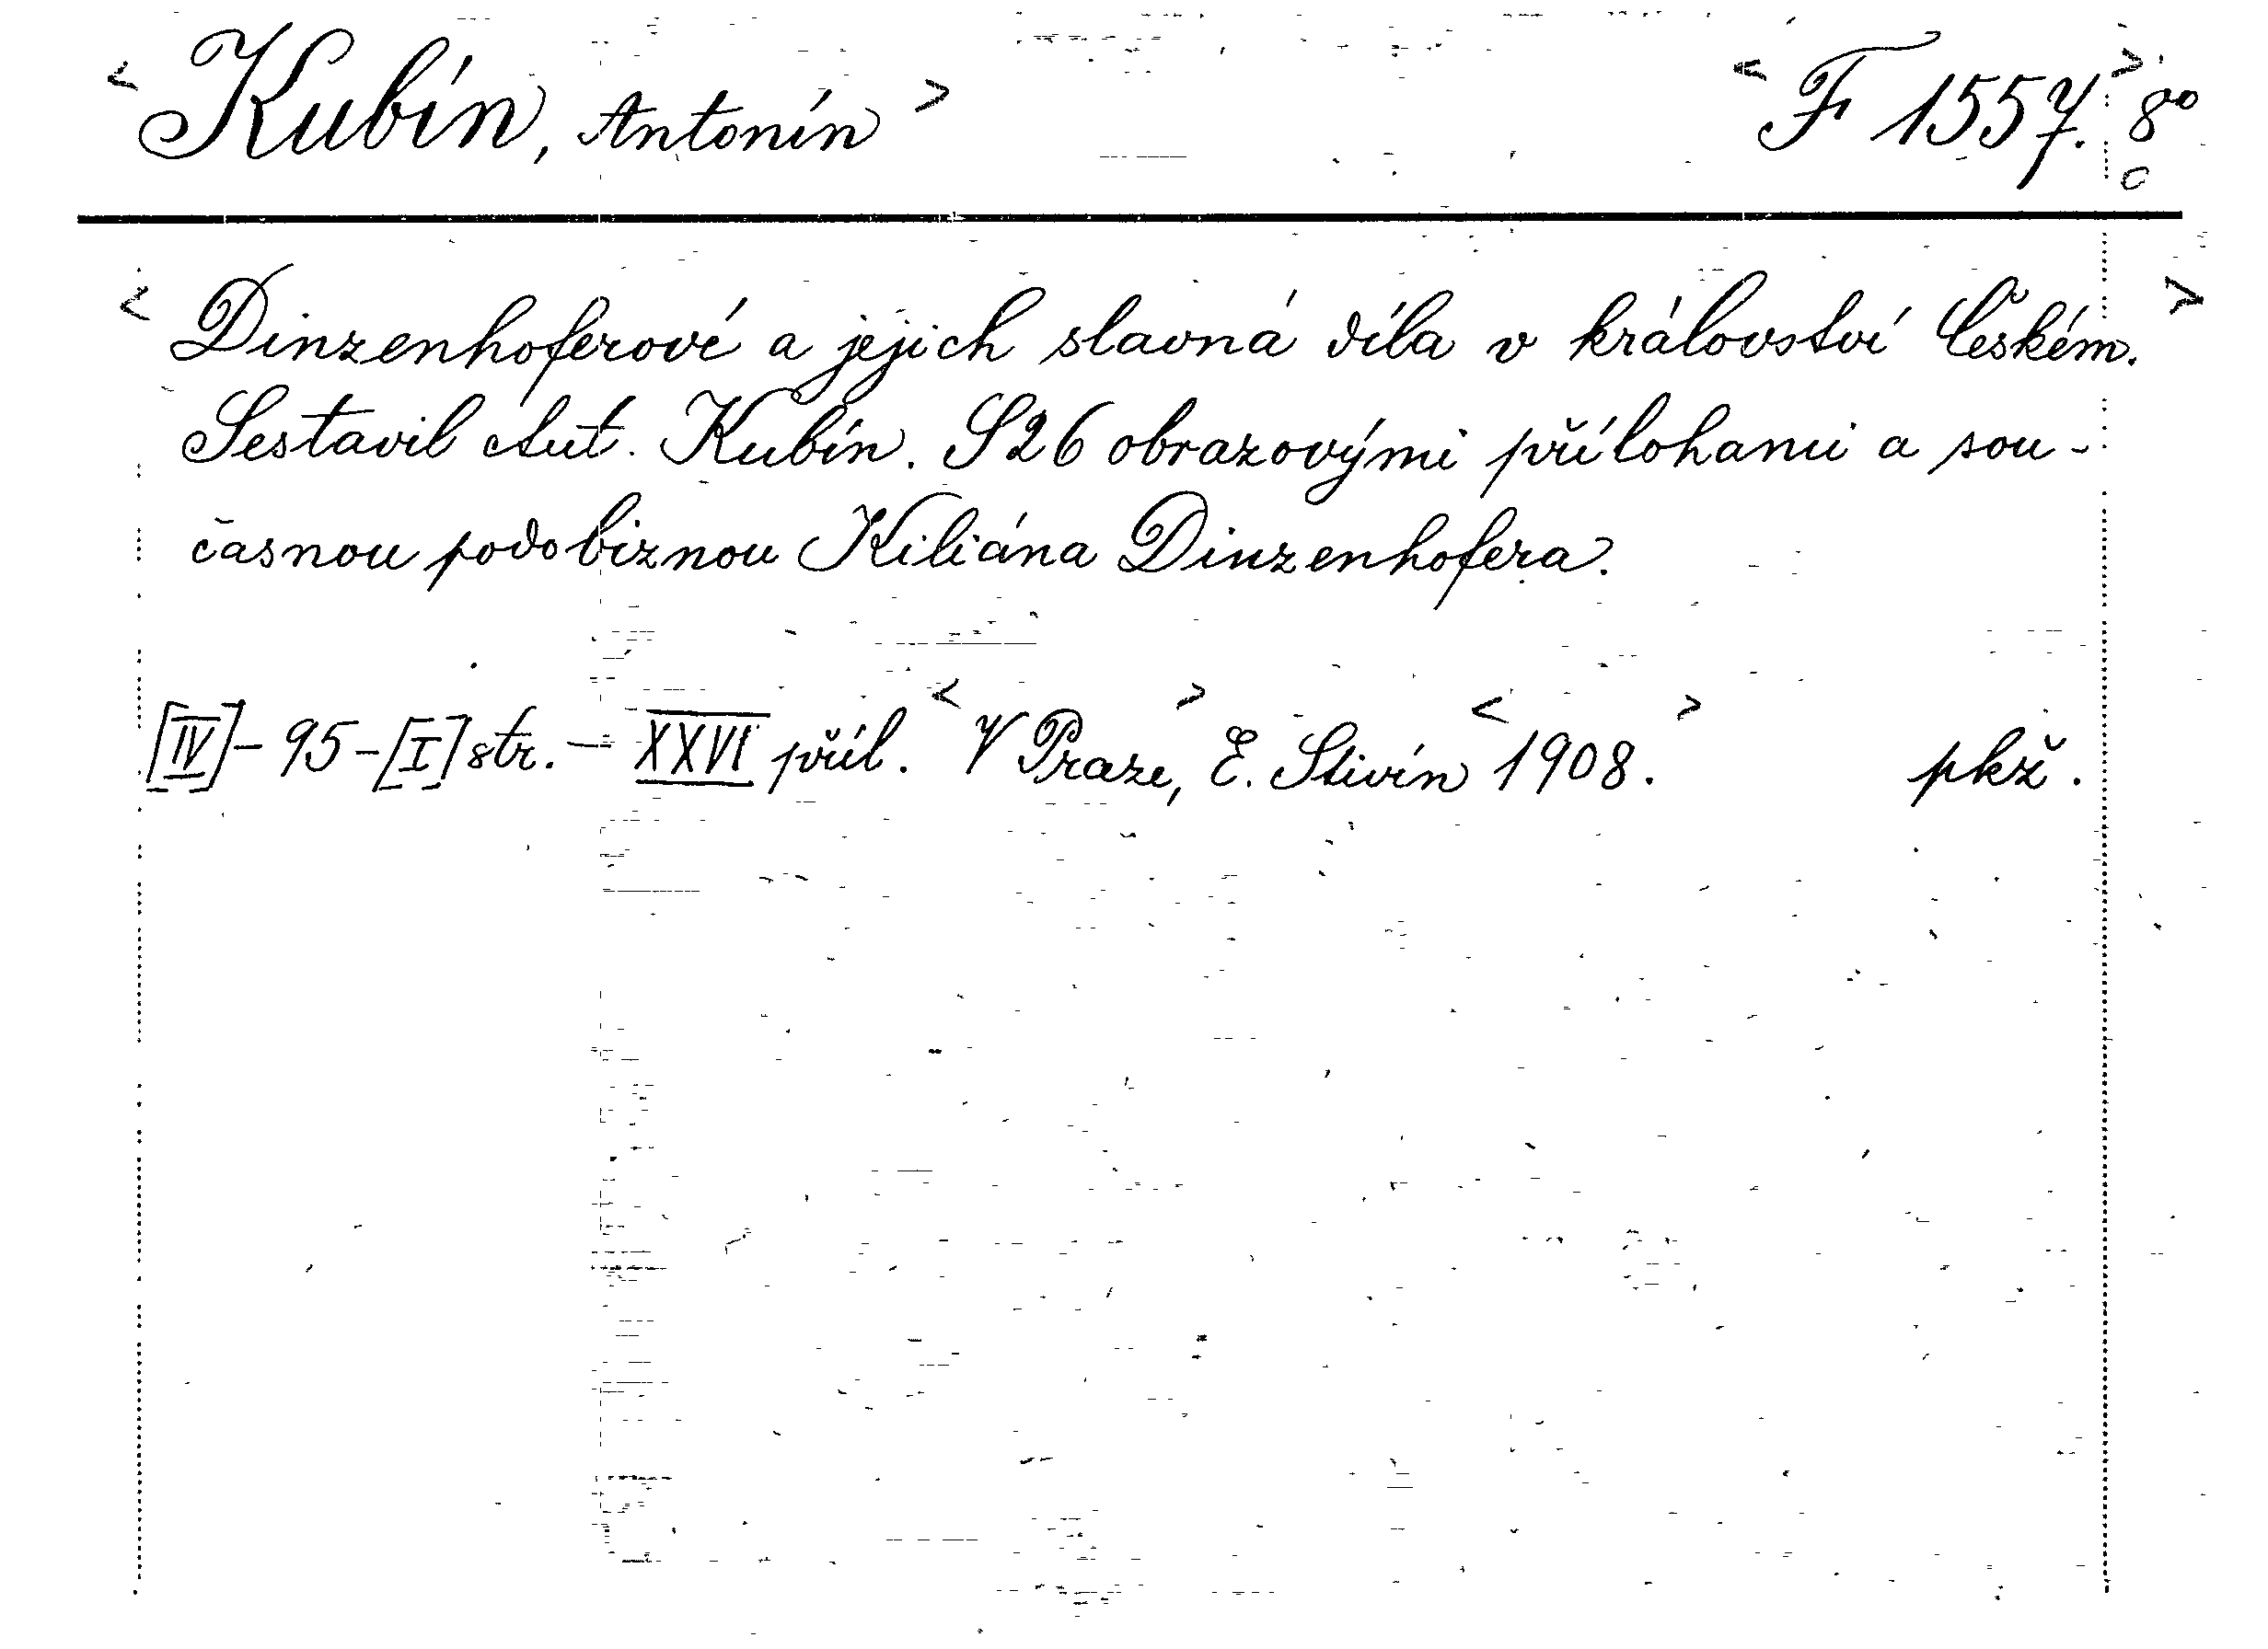 < Kubín, Antonín > < F 1557. > 8°
c
< Dinzenhoferové a jejich slavná díla v království Českém. >
Sestavil Ant. Kubín. S 26 obrazovými přílohami a sou-
časnou podobiznou Kiliána Dinzenhofera.
[IV] - 95 - [I] str. - XXVI příl. < V Praze, > E. Stivín < 1908. > pkž.